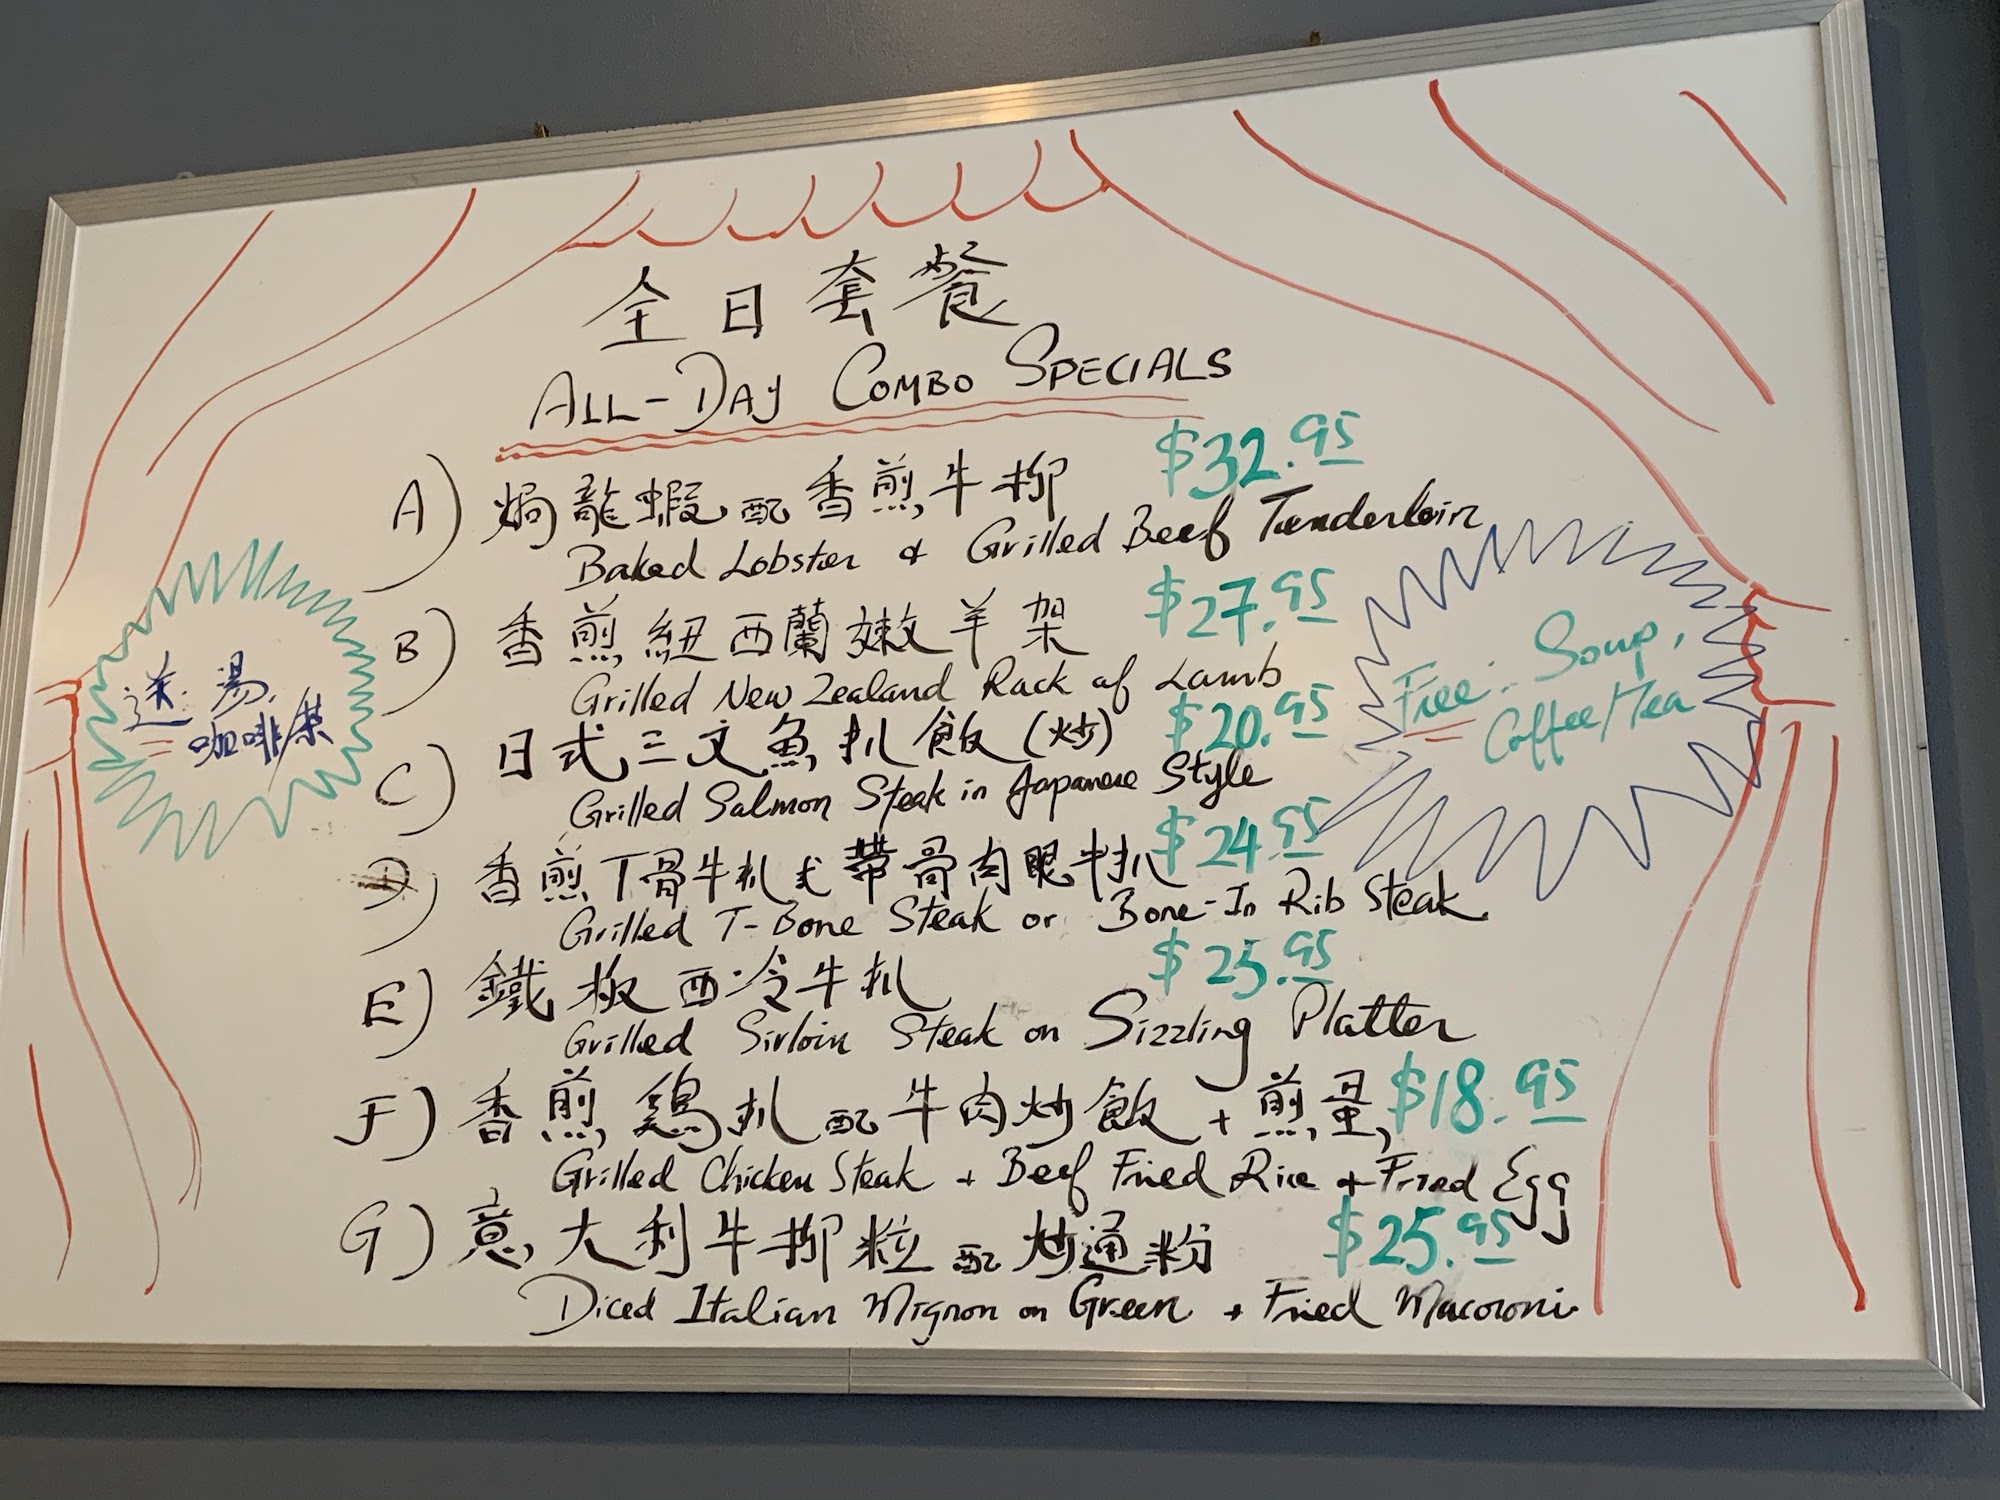 全日套餐
ALL-DAY COMBO SPECIALS
A) 焗龍蝦配香煎牛柳 $32.95
Baked Lobster & Grilled Beef Tenderloin
B) 香煎紐西蘭嫩羊架 $27.95
Grilled New Zealand Rack of Lamb
C) 日式三文魚扒飯(炒) $20.95
Grilled Salmon Steak in Japanese Style
D) 香煎T骨牛扒或帶骨肉眼牛扒 $24.95
Grilled T-Bone Steak or Bone-In Rib Steak
E) 鐵板西冷牛扒 $25.95
Grilled Sirloin Steak on Sizzling Platter
F) 香煎鷄扒配牛肉炒飯+煎蛋 $18.95
Grilled Chicken Steak + Beef Fried Rice + Fried Egg
G) 意大利牛柳粒配炒通粉 $25.95
Diced Italian Mignon on Green + Fried Macoroni
送:湯,
咖啡/茶
Free: Soup,
Coffee/Tea